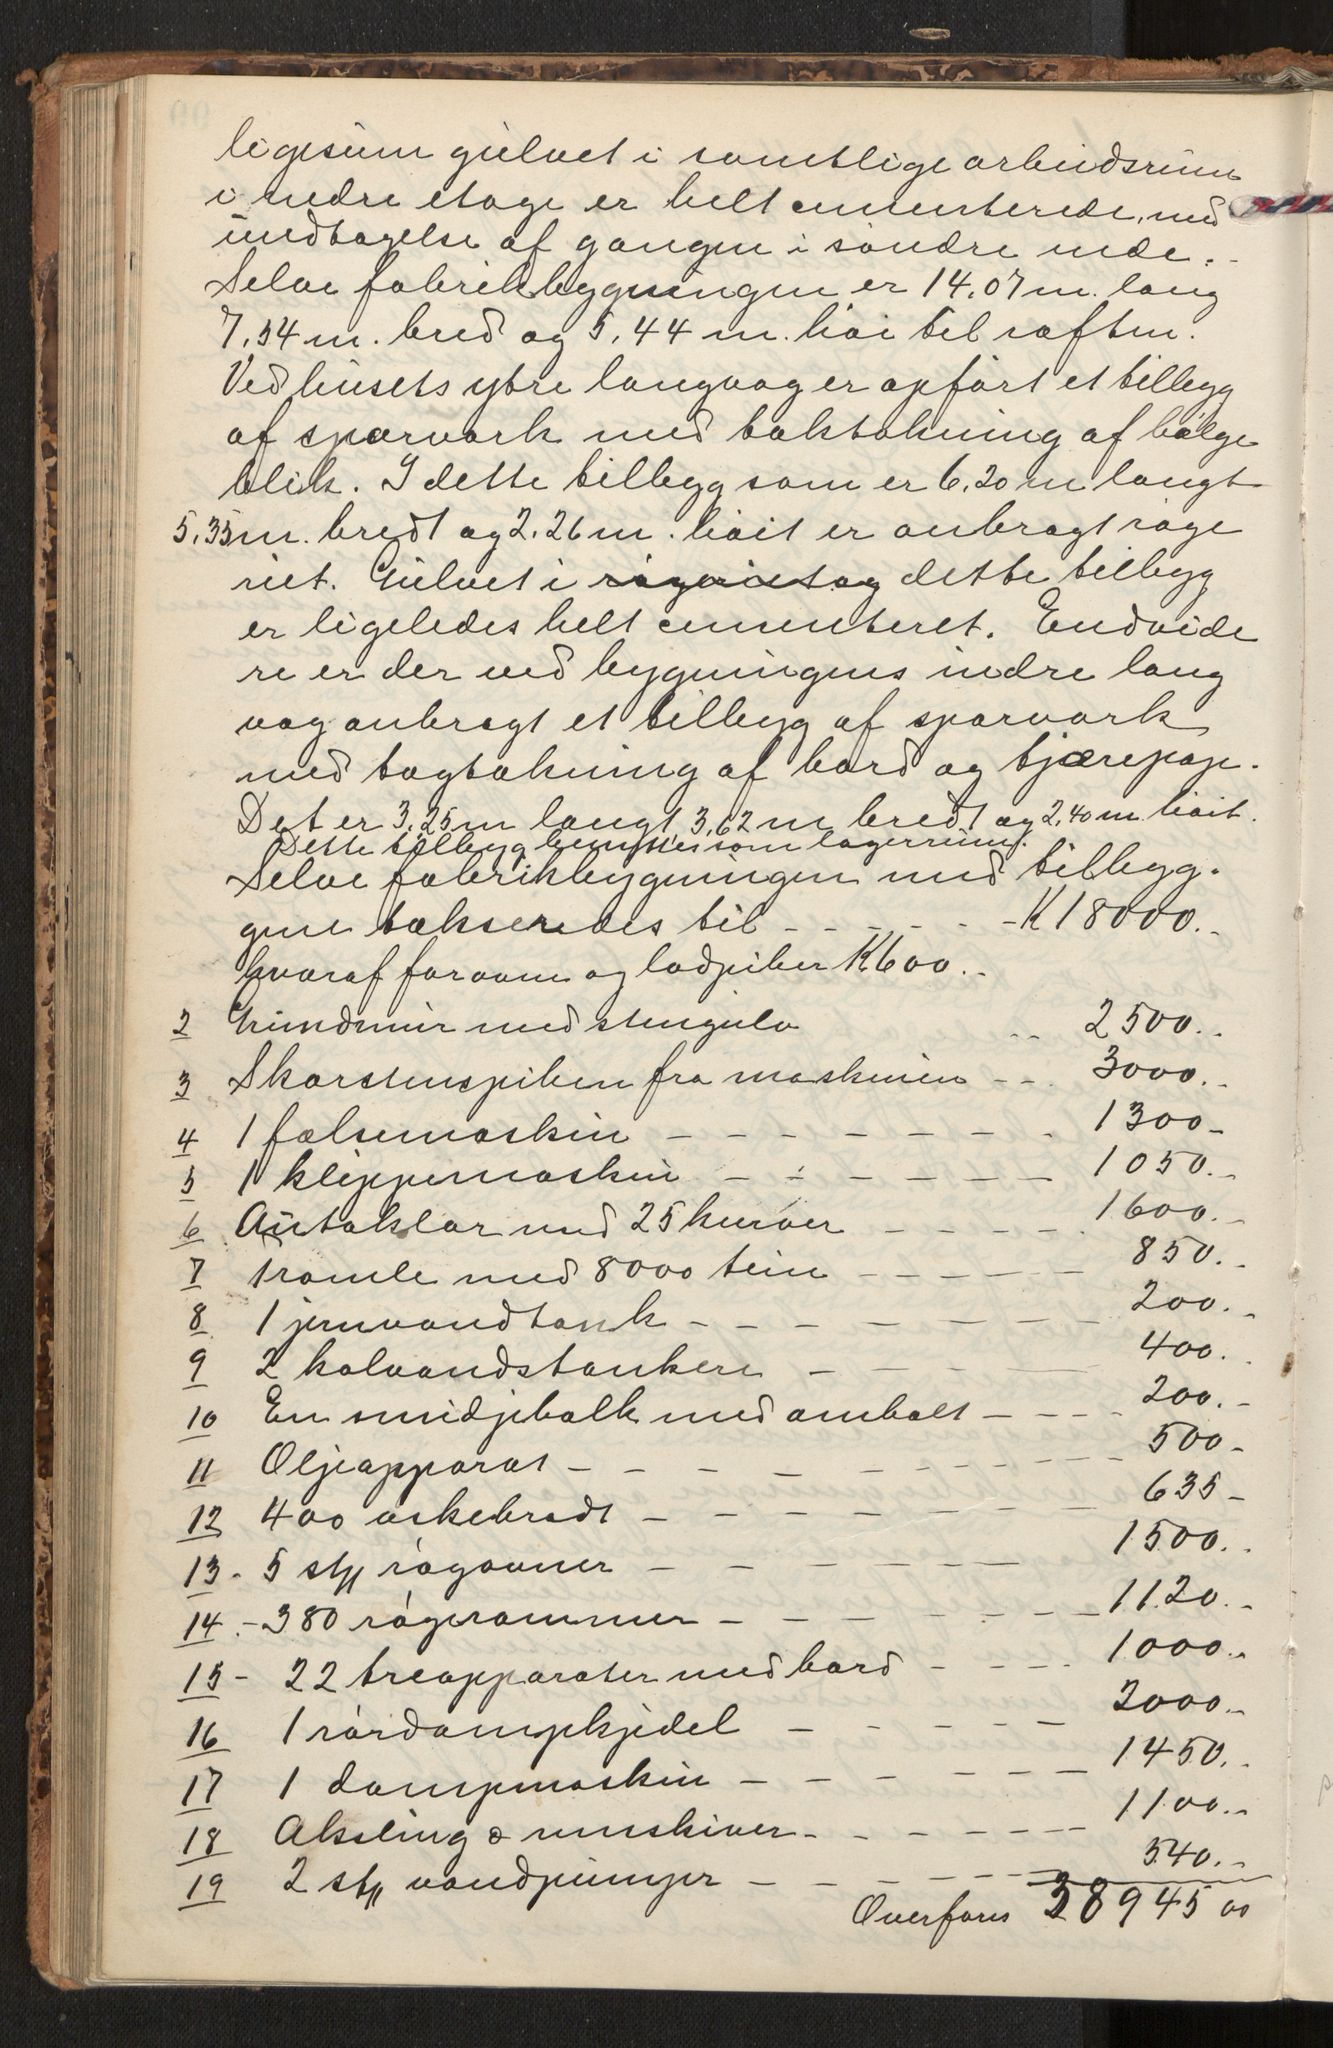 ligesom gulvet i samtlige arbeidsrum
i nedre etage er helt cementerede, med
undtagelse af gangen i søndre ende.
Selve fabrikbygningen er 14,07 m. lang
7,54 m. bred og 5,44 m. høi til raften.
Ved husets ytre langvæg er opført et tilbygg
af spærværk med taktækning af bølge
blik. I dette tilbygg som er 6,20 m langt
5,35 m. bredt og 2,26 m. høit er anbragt røge
riet. Gulvet i røgeriet og dette tilbygg
er ligeledes helt cementeret. Endvide
re er der ved bygningens indre lang
væg anbragt et tilbygg af spærværk
med tagtækning af bord og tjærepap.
Det er 3,25 m langt, 3,62 m bredt og 2,40 m høit.
Dette tilbygg benyttes som lagerrum.
Selve fabrikbygningen med tilbygg-
gene takseredes til - - - - - - K 18000.-
hvoraf for ovne og lodpiber K 600.-
2 Grundmur med stengulv - - 2500.-
3 Skorstenspiben fra maskinen - - 3000.-
4 1 falsemaskin - - - - - - - - 1300-
5 1 klippemaskin - - - - - - - 1050.-
6 Autoklav med 25 kurver - - - - - 1600.-
7 1 ramle med 8000 tein - - - - - 850.-
8 1 jernvandtank - - - - - - - - 200.-
9 2 kalvandstankere - - - - 400.-
10 En smidjebælk med ambolt - - - - 200.-
11 Oljeapparat - - - - - - - - - - 500-
12 400 virkebrædt - - - - - - - - 635-
13.- 5 stk røgovner - - - - - - 1500.-
14.- 380 røgerammer - - - - - - - 1120.-
15- 22 treapparater med bord - - - - 1000.-
16 1 rørdampkjedel - - - - - 2000.-
17 1 dampmaskin - - - - - - - 1450.-
18 Aksling & remskiver - - - - - - - 1100.-
19 2 stk vandpumper - - - - - - - 540.-
Overføres 38945 00